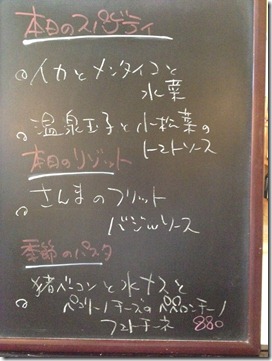 本日のスパゲティ
イカとメンタイコと
水菜
温泉玉子と小松菜の
トマトソース
本日のリゾット
さんまのフリット
バジルソース
季節のパスタ
猪ベーコンと水ナスと
ペコリーノチーズのペペロンチーノ
フェトチーネ 880